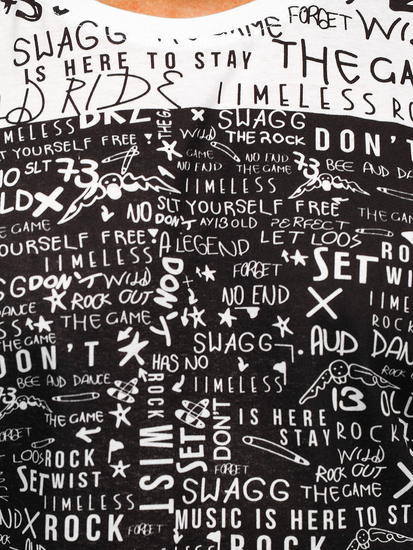 FORGET WI
SWAGG THE GAME
IS HERE TO STAY THE GA
RIDE TIMELESS RO
TIMELESS DRZ THE G SWAGG
WiLD THE ROCK DON'T
LT YOURSELF FREE
GAME NO END
NO SLT 73 NO END THE GAME 73 BEE AND DA
TIMELESS
LD X NO SLT YOURSELF FREE
DON'T AY13OLD PERFECT THE GA
E GAME
YOURSELF FREE A LEGEND LET LOOS
TIMELESS DON'T SET RO
FORGET WIS
SG DON'T WiLD
DANCE ROCK OUT NO END X TIME
SS THE GAME ROCK
DON'T SWAGG AUD DAN
HAS NO ROCK
BEE AND DANCE ROCK TIMELESS
13 OL
THE GAME WIST SET DON'T IS HERE
STAY ROCK
ORGET
LOOS ROCK WiLD
SET WIST FORGET ROCK OUT
TIMELESS SWAGG THE GAME
ND X ROCK FORGET MUSIC IS HERE TO ST
ROCK